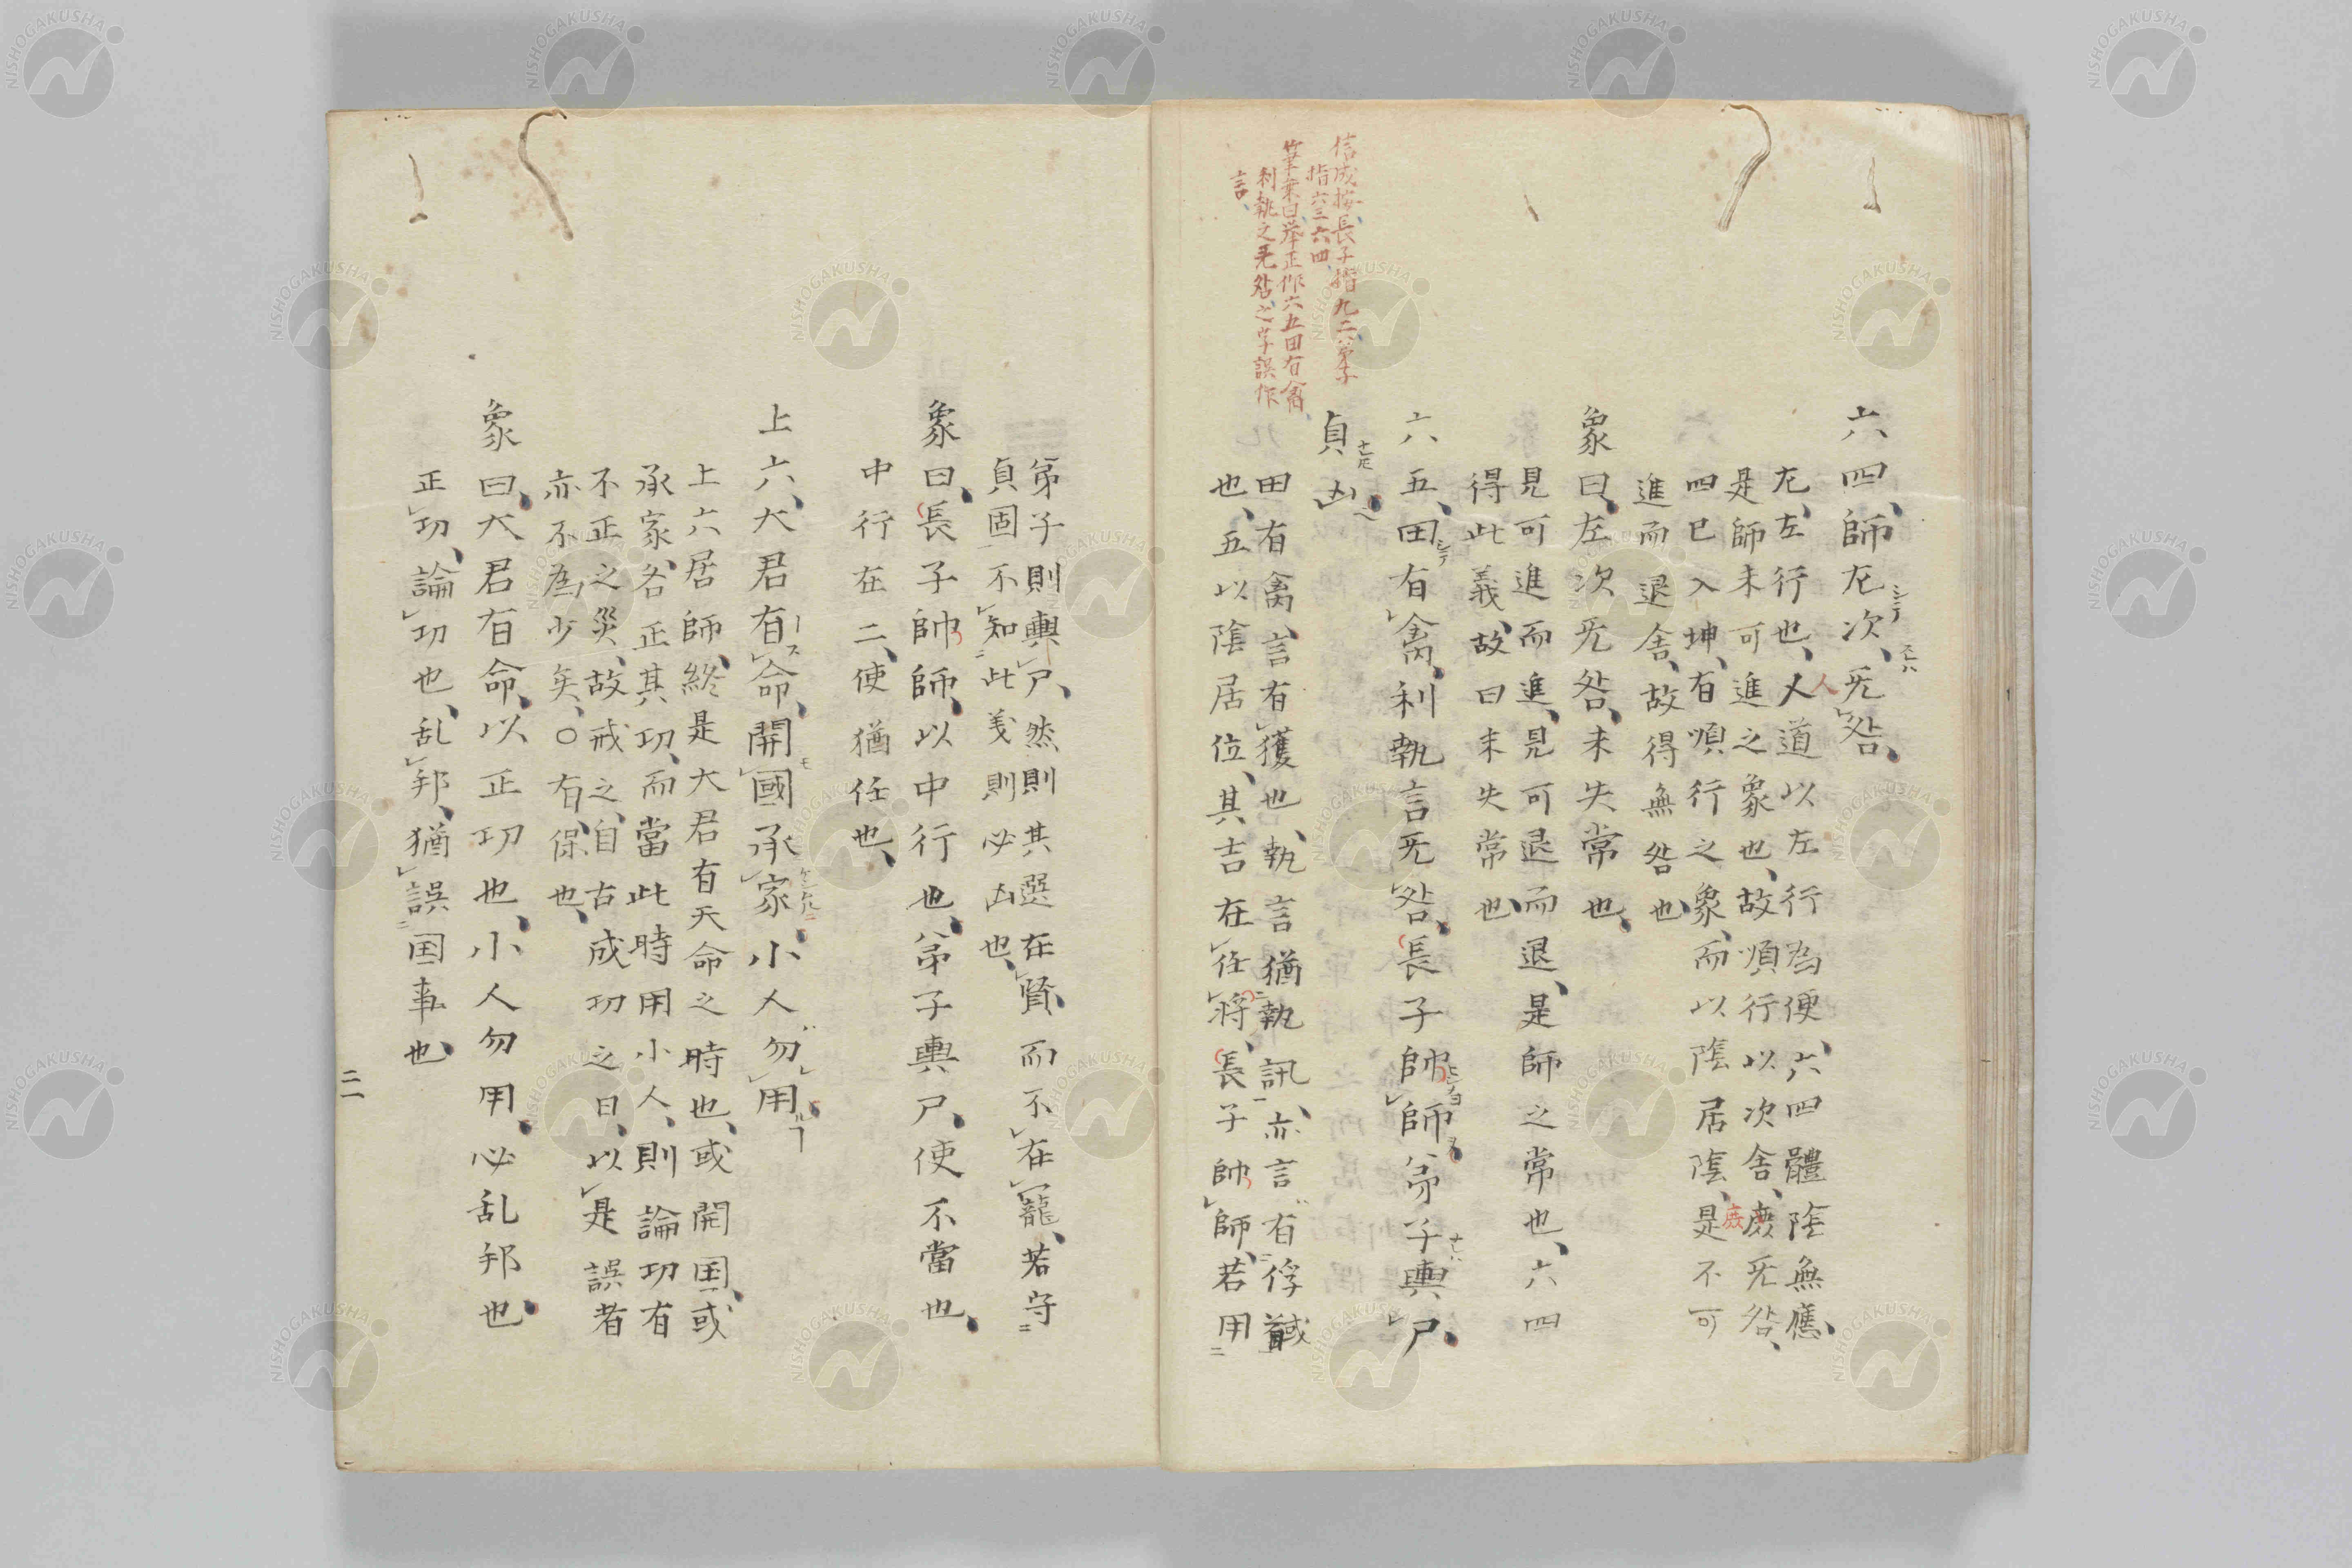 六四、師左次、无咎、
左、左行也、人道以左行為便、六四體陰無應、
是師未可進之象也、故順行以次舍、庶无咎、
四已入坤、有順行之象、而以陰居陰、是不可
進而退舍、故得無咎也、
象曰、左次无咎、未失常也、
見可進而進、見可退而退、是師之常也、六四
得此義、故曰未失常也、
六五、田有禽、利執言无咎、長子帥師、弟子輿尸、
貞凶、
信成按、長子指九二、弟子
指六三六四、
筆乗曰、挙正作六五田有禽
利執之无咎、之字誤作
言、
田有禽、言有獲也、執言猶執訊、亦言有俘馘
也、五以陰居位、其吉在任將、長子帥師、若用
弟子則輿尸、然則其選在賢、而不在寵、若守
貞固、不知此義則必凶也、
象曰、長子帥師、以中行也、弟子輿尸、使不當也、
中行在二、使猶任也、
上六、大君有命、開國承家、小人勿用、
上六居師終、是大君有天命之時也、或開国、或
承家、各正其功、而當此時用小人、則論功有
不正之災、故戒之、自古成功之日、以是誤者
亦不為少矣、○有、保也、
象曰、大君有命、以正功也、小人勿用、必乱邦也、
正功、論功也、乱邦、猶誤国事也、
二一